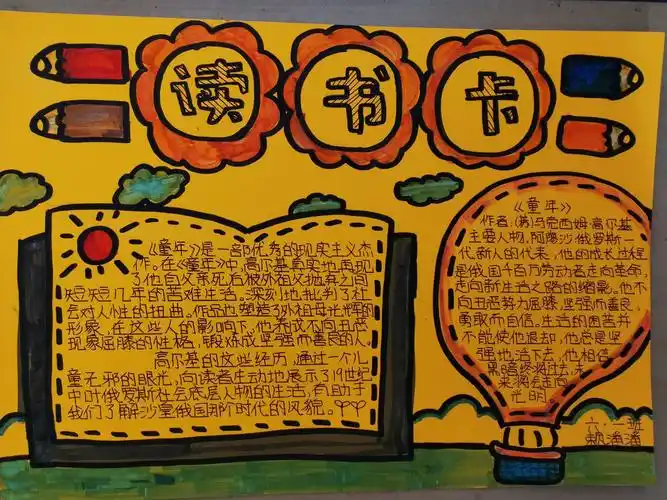 读书卡
《童年》是一部优秀的现实主义杰
作。在《童年》中,高尔基真实地再现
了他自父亲死后被外祖父抛弃之间
短短几年的苦难生活。深刻地批判了社
会对人性的扭曲。作品也塑造了外祖母光辉的
形象,在这些人的影响下,他养成不向丑恶
现象屈膝的性格,锻炼成坚强而善良的人。
高尔基的这些经历,通过一个儿
童无邪的眼光,向读者生动地展示了19世纪
中叶俄罗斯社会底层人物的生活,有助于
我们了解沙皇俄国那个时代的风貌。
《童年》
作者:(苏)马克西姆·高尔基
主要人物,阿廖沙俄罗斯一
代新人的代表,他的成长过程
是俄国千百万劳动者走向革命,
走向新生活之路的缩影。他不
向丑恶势力屈膝,坚强而善良,
勇敢而自信。生活的困苦并
不能使他退却,他总是坚
强地活下去,他相信
黑暗终将过去,未
来将会走向
光明。
六·一班
潘潘